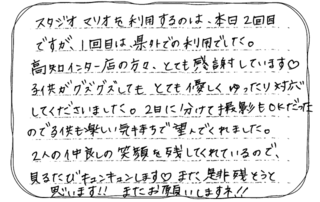 スタジオマリオを利用するのは、本日2回目
ですが、1回目は県外での利用でした。
高知インター店の方々、とても感謝しています♡
子供がグズグズしてもとても優しくゆったり対応
してくださいました。2日に分けて撮影もOKだった
ので子供も楽しい気持ちで望んでくれました。
2人の仲良しの笑顔を残してくれているので、
見るたびキュンキュンします♡また是非残そうと
思います!! またお願いしますネ!!